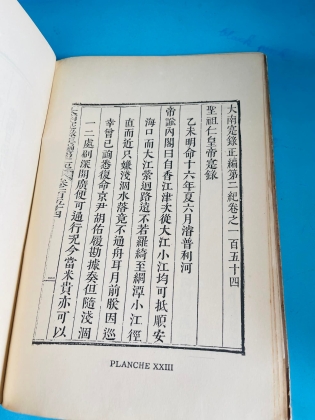 大南寔錄正編第二紀卷之一百五十四
聖祖仁皇帝寔錄
乙未明命十六年夏六月濬普利河
帝諭內閣曰自香江津次從大江小江均可抵順安
海口而大江縈迴路遠不若羅綺至綱潭小江徑
直而近只嫌淺涸水咨竟不通舟耳月前朕因巡
幸曾已諭悉復命京尹胡佑履勘據奏但隨淺涸
一二處剮深開廣便可通行況今當米貴亦可以
PLANCHE XXIII